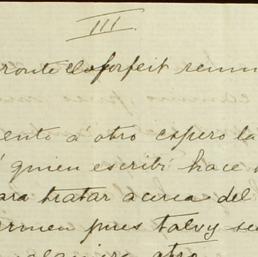 III
forfeit
ento á otro espero la
quien escribí hace
ara tratar acerca del
rmen pues talvy se
otro